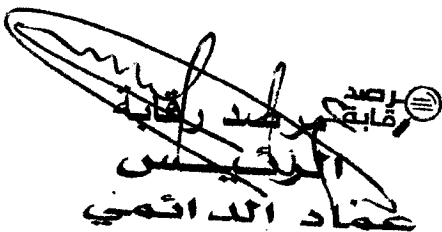 مرصد رقابة
مرصد رقابة
الرئيس
عماد الدائمي